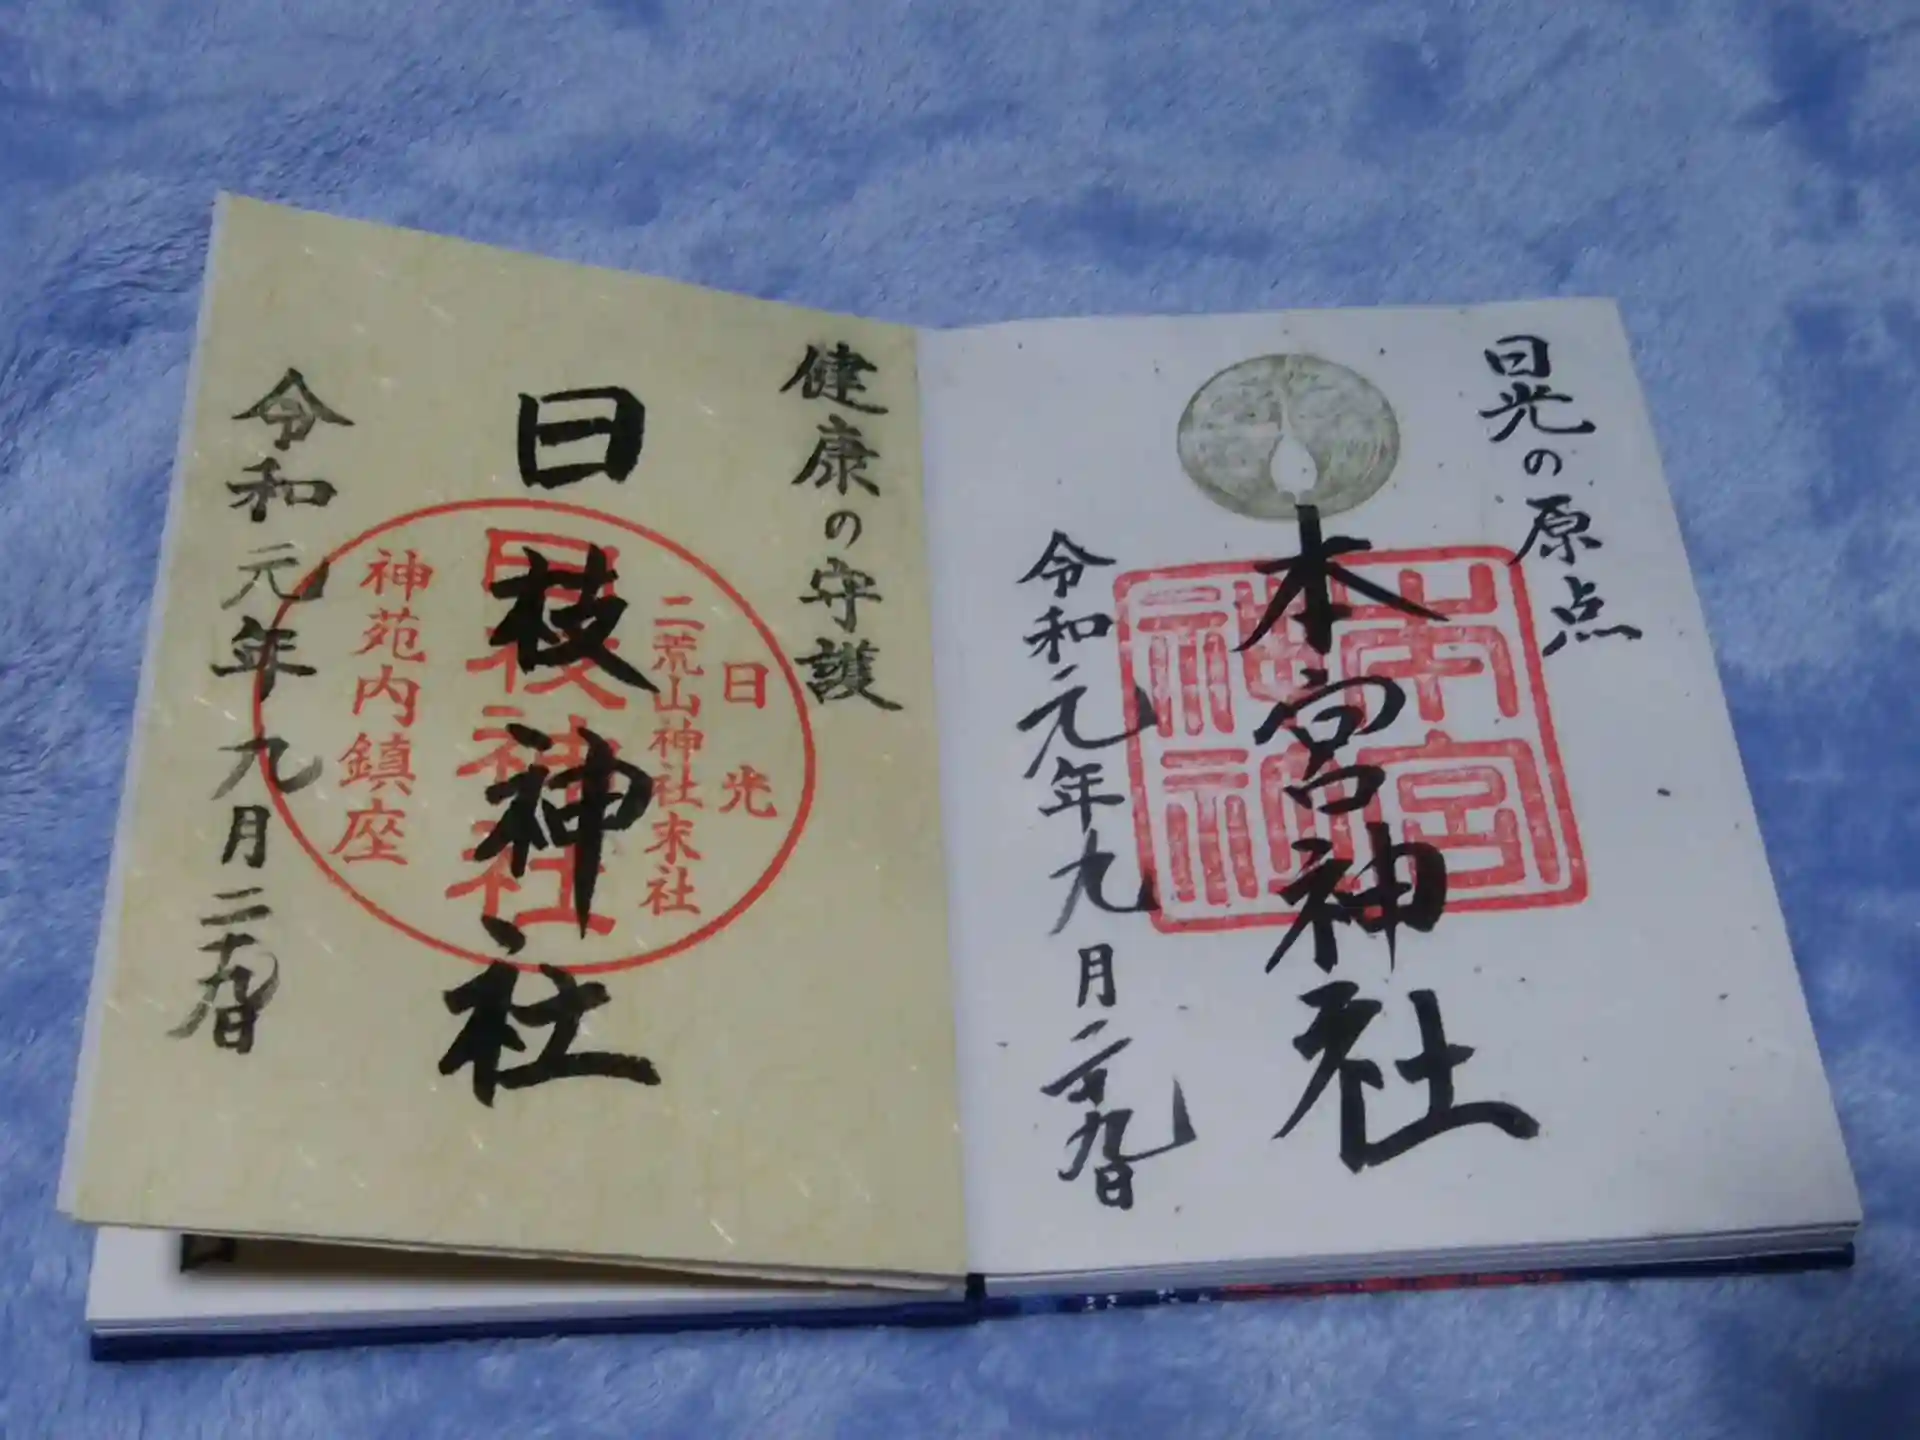 日光の原点
本宮神社
本宮神社
令和元年九月二十九日
健康の守護
日枝神社
日光
二荒山神社末社
日枝神社
神苑内鎮座
令和元年九月二十九日